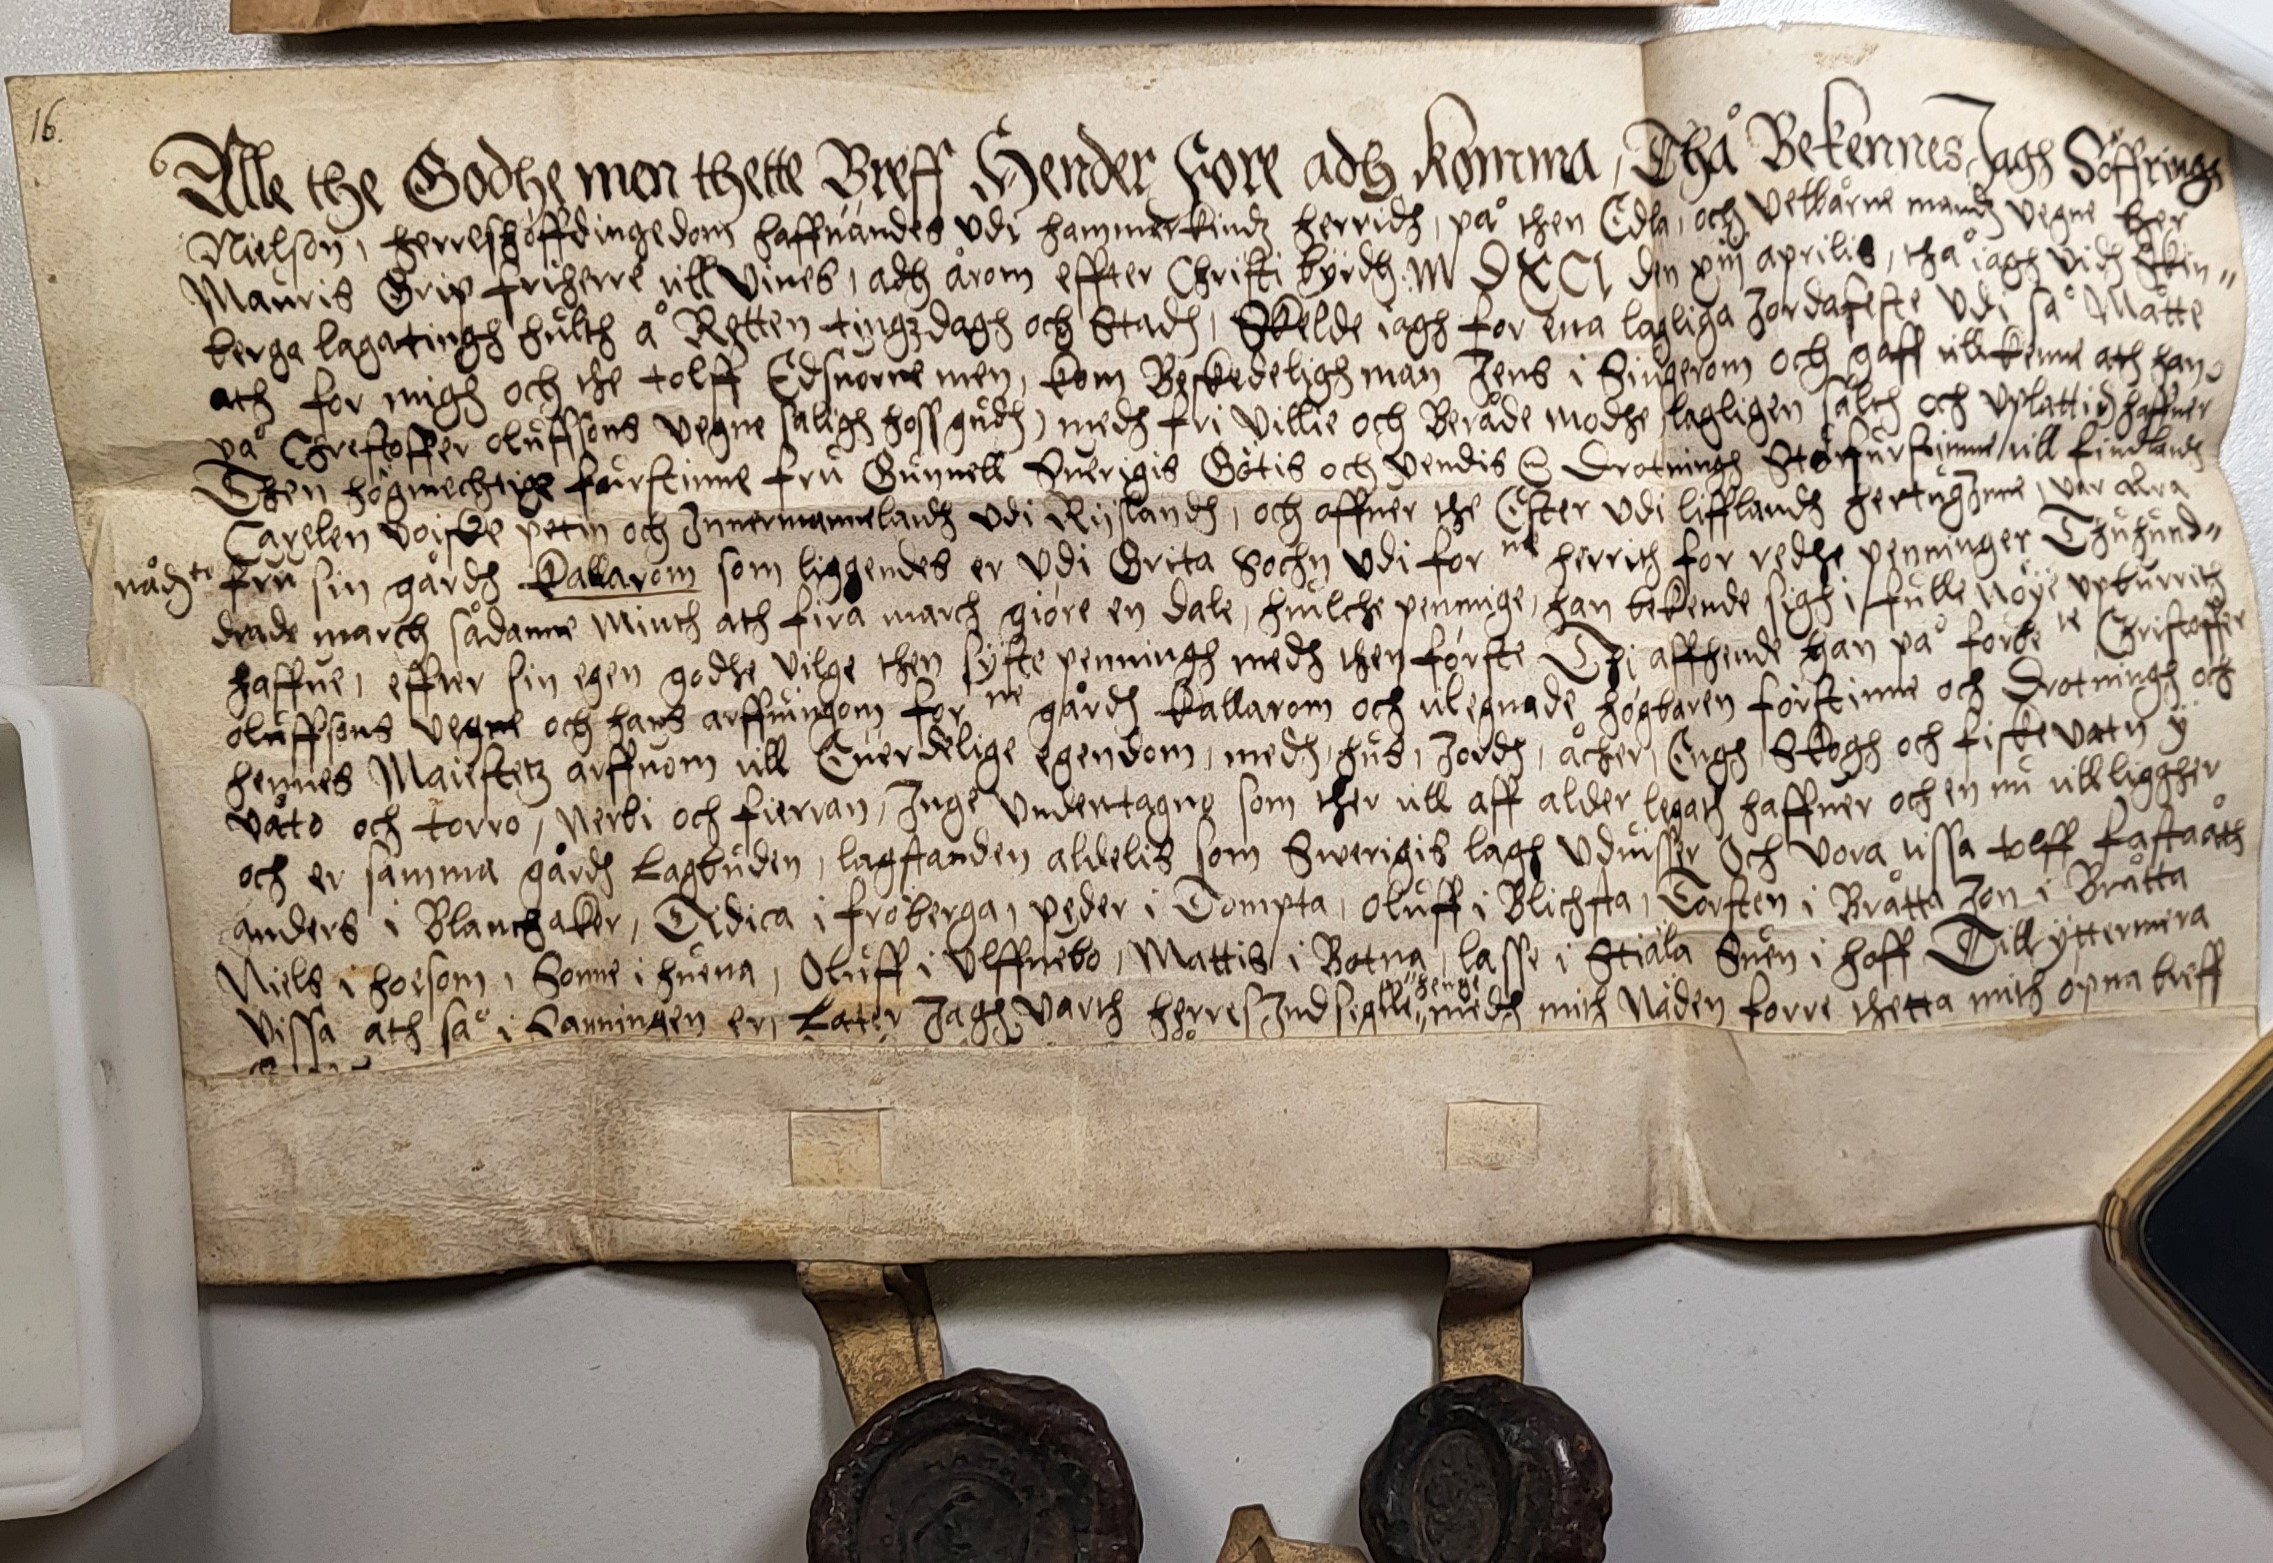 16.
Alle the Godhe men thette Breff Hender Fore adh komma, Thå Bekennes Jagh Söffringh
Nielson, herreshöffdingedom haffuandes udi hammerkindz herridh, på then Edla, och velbårne mandz vegne her
Mauris Grip friherre till Vines, adh årom effter Christi byrdh M D XC I den xiij aprilis, thå iagh vidh Skin„
berga lagatingh hulth å Retten tingzdagh och Stadh, Skelde iagh for ena lagliga Jordafeste udi så Måtte
ath for migh och the tolff Edsuorne men, kom Beskedeligh man Jens i Singerom och gaff tillkenne ath han
på Chrestoffer oluffsons vegne saligh hoss gudh, medh fri villie och Beråde modhe lagligen sålth och uplattidh haffuer
Then högmechtige furstinne fru Gunnell Suerigis Götis och Vendis Drotningh Storfurstinne till findlandh
Carelen Voiske petin och Innermannelandh udi Rijslandh, och offuer the Ester udi lifflandh hertuginne, vår alra
nådhte fru sin gårdh Kallarom som liggendes er udi Grita Sochn udi for ne herrith for redhe penninger Thuhund„
drade march sådanne Minth ath fira march giöre en dale, huilche penninge, han bekende sigh i fulle nöye upburrith
haffue, effter sin egen godhe vilge then syste penningh medh then förste Thj affhende han på forbe te Christoffer
oluffsons vegne och hans arffuingom for ne gårdh Kallarom och tilegnade högbaren förstinne och Drotningh och
hennes Maiestetz arffuom till Euerdelige egendom, medh, hus, Jordh, åcher, Engh, Skogh och fiskevatn y
våto och torro, Nerbi och fierran, Inge undentagno som ther till aff alder legath haffuer och en nu till liggher
och er samma gårdh Lagbuden, lagstanden aldelis som Swerigis lagh uduisser Och vora tissa tolff fasta åth
anders i Blanchaker, Tidica i fröberga, peder i Tompta, oluff i Blichsta, Torsten i Bråtta Jon i Bråtta
Niels i horsom, Sonne i huena, Oluff i Ulffuebo, Mattis i Botna, lasse i Stiåla Suen i hoff Till yttermera
henge
Vissa ath så i Sanningen er, Later Jagh Varth herres Indsiglle medh mith Näden forre thetta mith opna breff